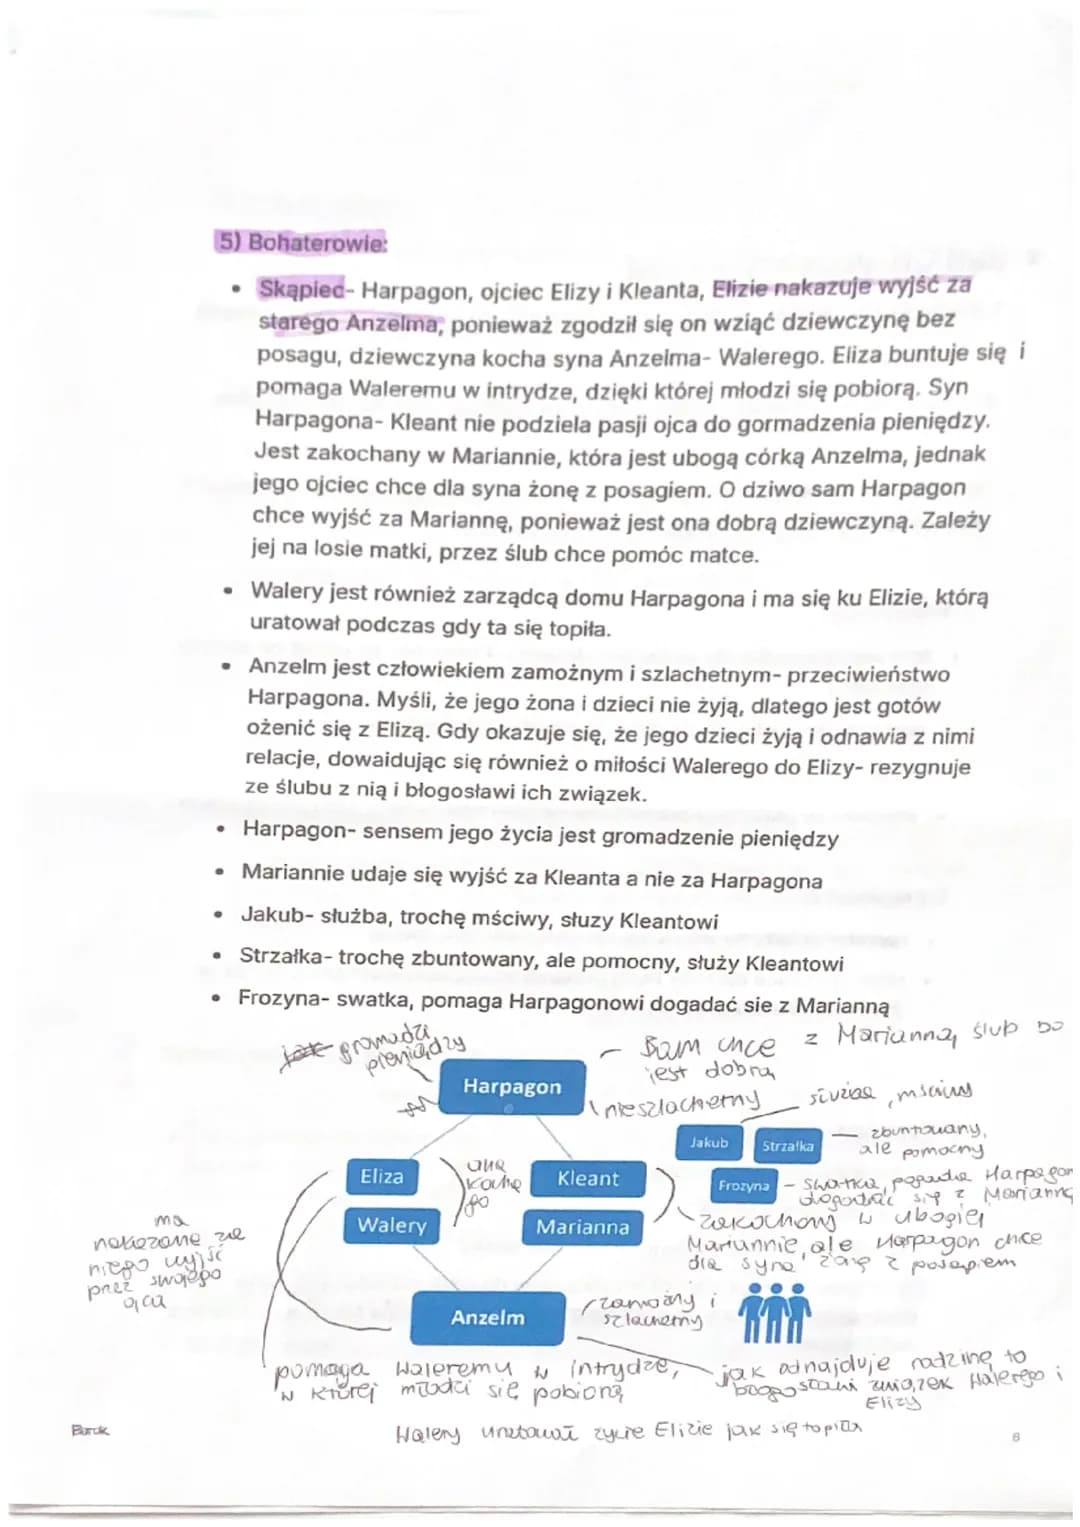 5) Bohaterowie:
• Skąpiec- Harpagon, ojciec Elizy i Kleanta, Elizie nakazuje wyjść za
starego Anzelma, ponieważ zgodził się on wziąć dziewczynę bez
posagu, dziewczyna kocha syna Anzelma- Walerego. Eliza buntuje się i
pomaga Waleremu w intrydze, dzięki której młodzi się pobiorą. Syn
Harpagona- Kleant nie podziela pasji ojca do gormadzenia pieniędzy.
Jest zakochany w Mariannie, która jest ubogą córką Anzelma, jednak
jego ojciec chce dla syna żonę z posagiem. O dziwo sam Harpagon
chce wyjść za Mariannę, ponieważ jest ona dobrą dziewczyną. Zależy
jej na losie matki, przez ślub chce pomóc matce.
• Walery jest również zarządcą domu Harpagona i ma się ku Elizie, którą
uratował podczas gdy ta się topiła.
• Anzelm jest człowiekiem zamożnym i szlachetnym- przeciwieństwo
Harpagona. Myśli, że jego żona i dzieci nie żyją, dlatego jest gotów
ożenić się z Elizą. Gdy okazuje się, że jego dzieci żyją i odnawia z nimi
relacje, dowaidując się również o miłości Walerego do Elizy- rezygnuje
ze ślubu z nią i błogosławi ich związek.
• Harpagon- sensem jego życia jest gromadzenie pieniędzy
• Mariannie udaje się wyjść za Kleanta a nie za Harpagona
• Jakub- służba, trochę mściwy, słuzy Kleantowi
• Strzałka- trochę zbuntowany, ale pomocny, służy Kleantowi
• Frozyna- swatka, pomaga Harpagonowi dogadać sie z Marianną
gromadzi
pieniądzy
- Sam chce z Marianną ślub bo
jest dobrą
Harpagon
nieszlachetny
służba, mściwy
Jakub
Strzałka
- zbuntowany,
ale pomocny
Eliza
ona
kocha
go
Kleant
Frozyna
- swatka, Harpagon
dogadać się z Marianną
Walery
Marianna
- zakochany w ubogiej
Mariannie, ale Harpagon chce
dla syna żonę z posagiem
ma
nakazane za
niego wyjść
przez swojego
ojca
Anzelm
zamożny i
szlachetny
pomaga Waleremu w intrydze,
w której młodzi się pobiorą
jak odnajduje rodzinę to
związek Walerego i
Elizy
Walery uratował życie Elizie jak się topiła
Barok
8